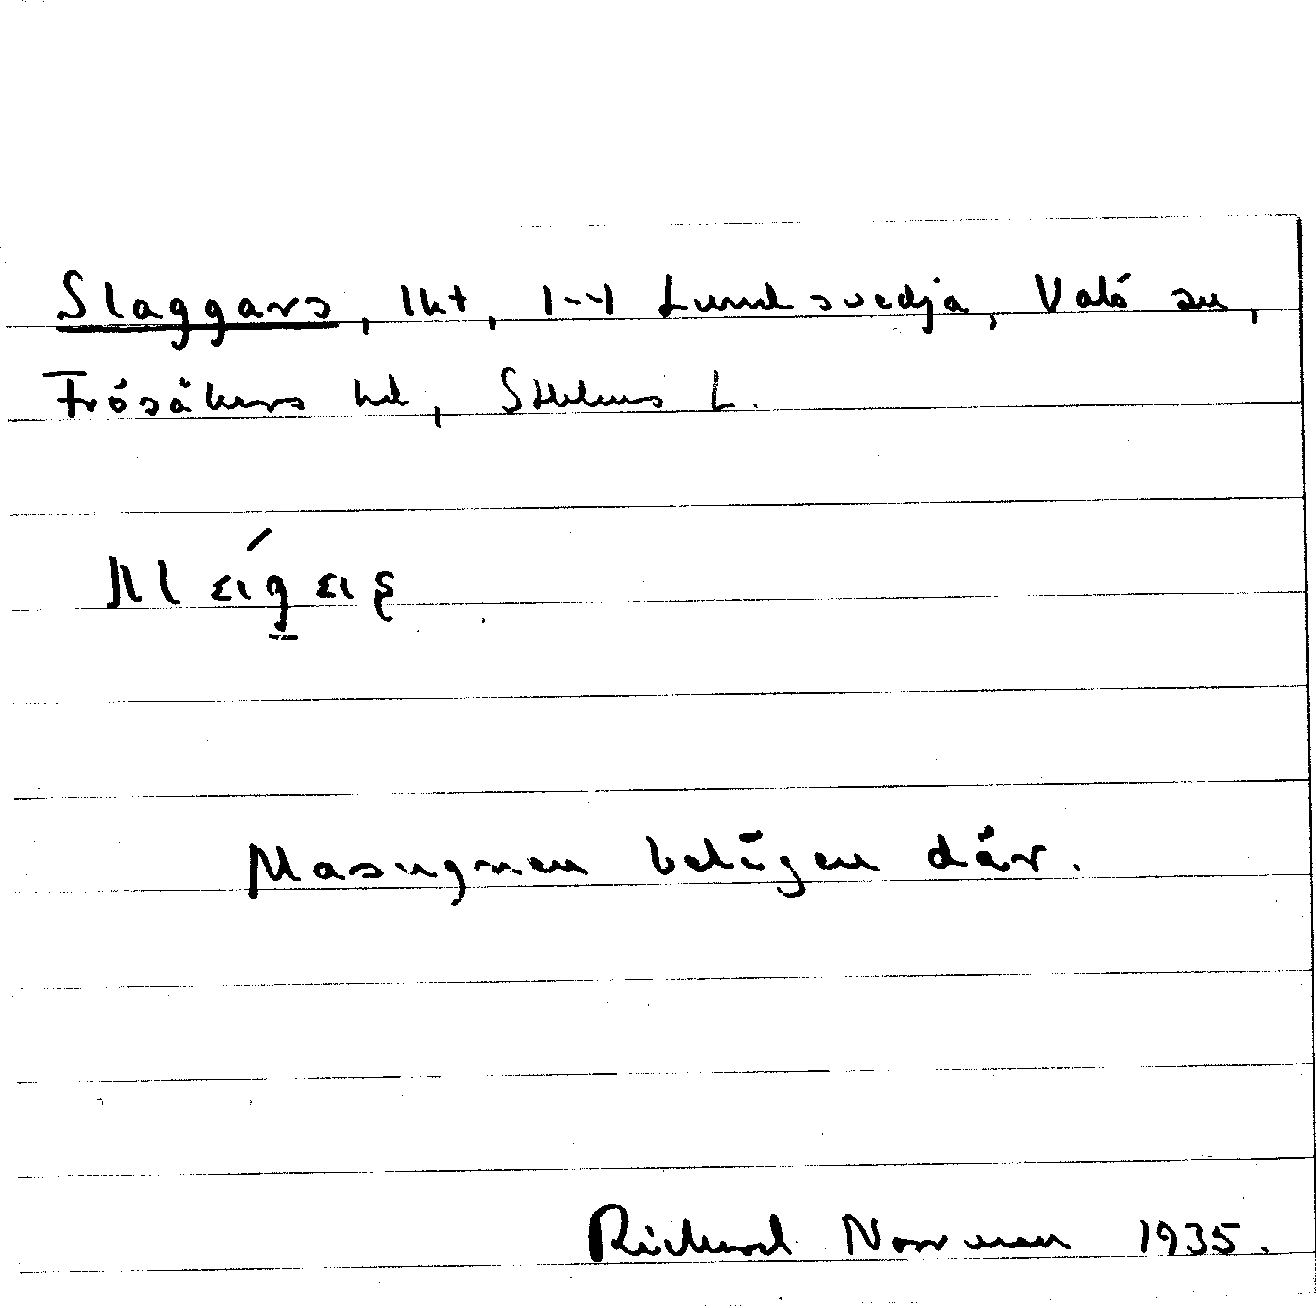 Slaggars, lht, 1-4 Lundsvedja, Valö sn,
Frösåkers hd, Sthlms L.
Masugnen belägen där.
Rickard Norrman 1935.